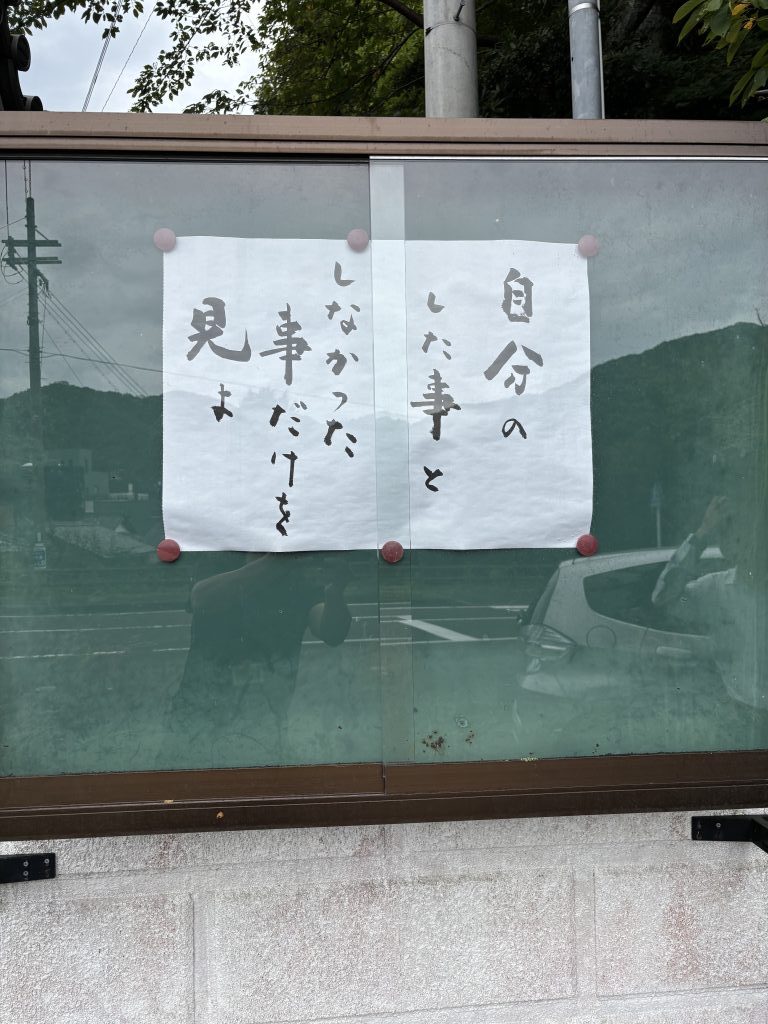 自分の
した事と
しなかった
事だけを
見よ